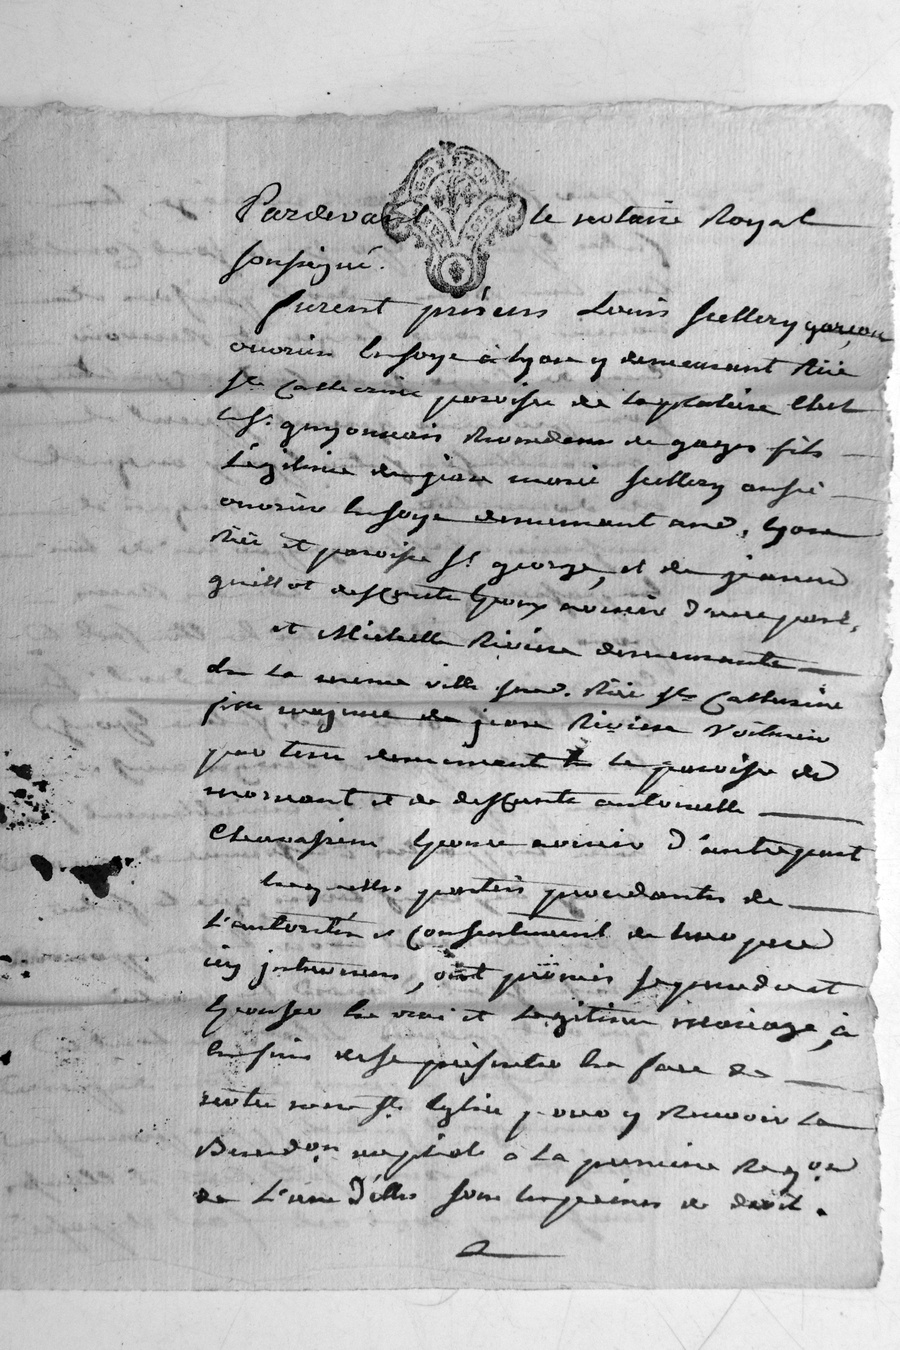 Pardevant le notaire Royal
soussigné.
furent présens Louis Scellery garçon
ouvrier en soye à lyon y demeurant Rüe
Ste Catherine paroisse de la platière chez
le Sr. guyonnain de gages fils
Légitime de jean marie Scellery aussi
ouvrier en soye demeurant aud. lyon
Rüe et paroisse St george, et de jeanne
guillot deffunte d'une part,
et Michelle Riviere demeurante
de la meme ville susd. Rüe Ste Catherine
fille majeure de jean Riviere Voiturier
par terre demeurant la paroisse de
mornant et de deffunte antoinette
d'autre part
Lesquelles parties procedantes de
L'autorité et consentement de leur pere
icy, ont promis se prendre et
Epouser en vrai et Legitime Mariage, à
ces fins de se présenter en face de
notre mere Ste Eglise pour y Recevoir la
Bened.on nuptiale a la premiere Req.on
de L'une d'elles sous les peines de droit.